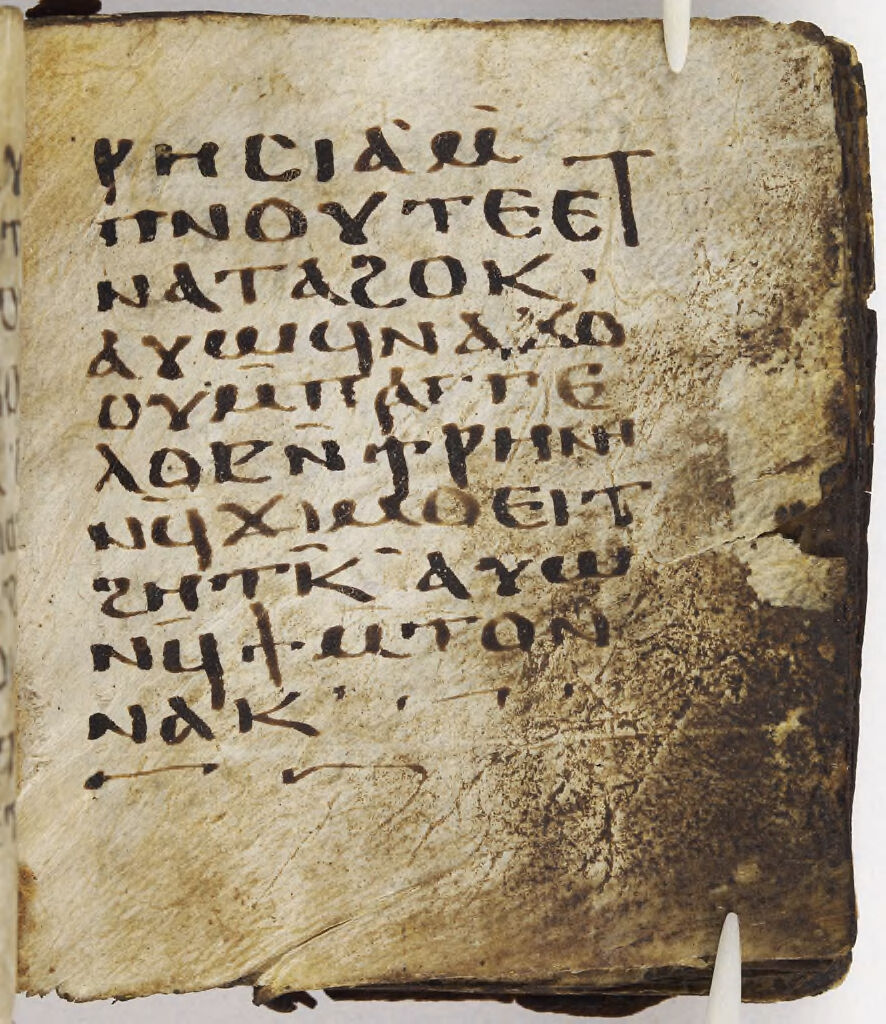 ⲣⲏⲥⲓⲁ ⲙ̄
ⲡⲛⲟⲩⲧⲉ ⲉⲧ
ⲛⲁⲧⲁϩⲟⲕ·
ⲁⲩⲱ ϥⲛⲁϫⲟ
ⲟⲩ ⲙ̄ⲡⲁⲅⲅⲉ
ⲗⲟⲥ ⲛ̄ϯⲣⲏⲛⲏ
ⲛϥ̄ϫⲓⲙⲟⲉⲓⲧ
ϩⲏⲧⲕ̄ ⲁⲩⲱ
ⲛϥ̄ϯ ⲙⲧⲟⲛ
ⲛⲁⲕ